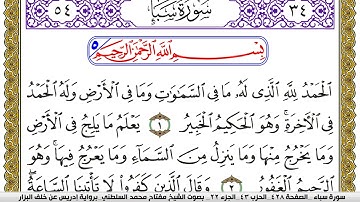 ٥٤ سُورَةُ سَبَإٍ ٣٤
بِسْمِ اللَّهِ الرَّحْمَٰنِ الرَّحِيمِ
الْحَمْدُ لِلَّهِ الَّذِي لَهُ مَا فِي السَّمَاوَاتِ وَمَا فِي الْأَرْضِ وَلَهُ الْحَمْدُ
فِي الْآخِرَةِ وَهُوَ الْحَكِيمُ الْخَبِيرُ ١ يَعْلَمُ مَا يَلِجُ فِي الْأَرْضِ
وَمَا يَخْرُجُ مِنْهَا وَمَا يَنزِلُ مِنَ السَّمَاءِ وَمَا يَعْرُجُ فِيهَا وَهُوَ
الرَّحِيمُ الْغَفُورُ ٢ وَقَالَ الَّذِينَ كَفَرُوا لَا تَأْتِينَا السَّاعَةُ
سورة سباء . الصفحة ٤٢٨ . الحزب ٤٣ . الجزء ٢٢ . بصوت الشيخ مفتاح محمد السلطني برواية إدريس عن خلف البزار